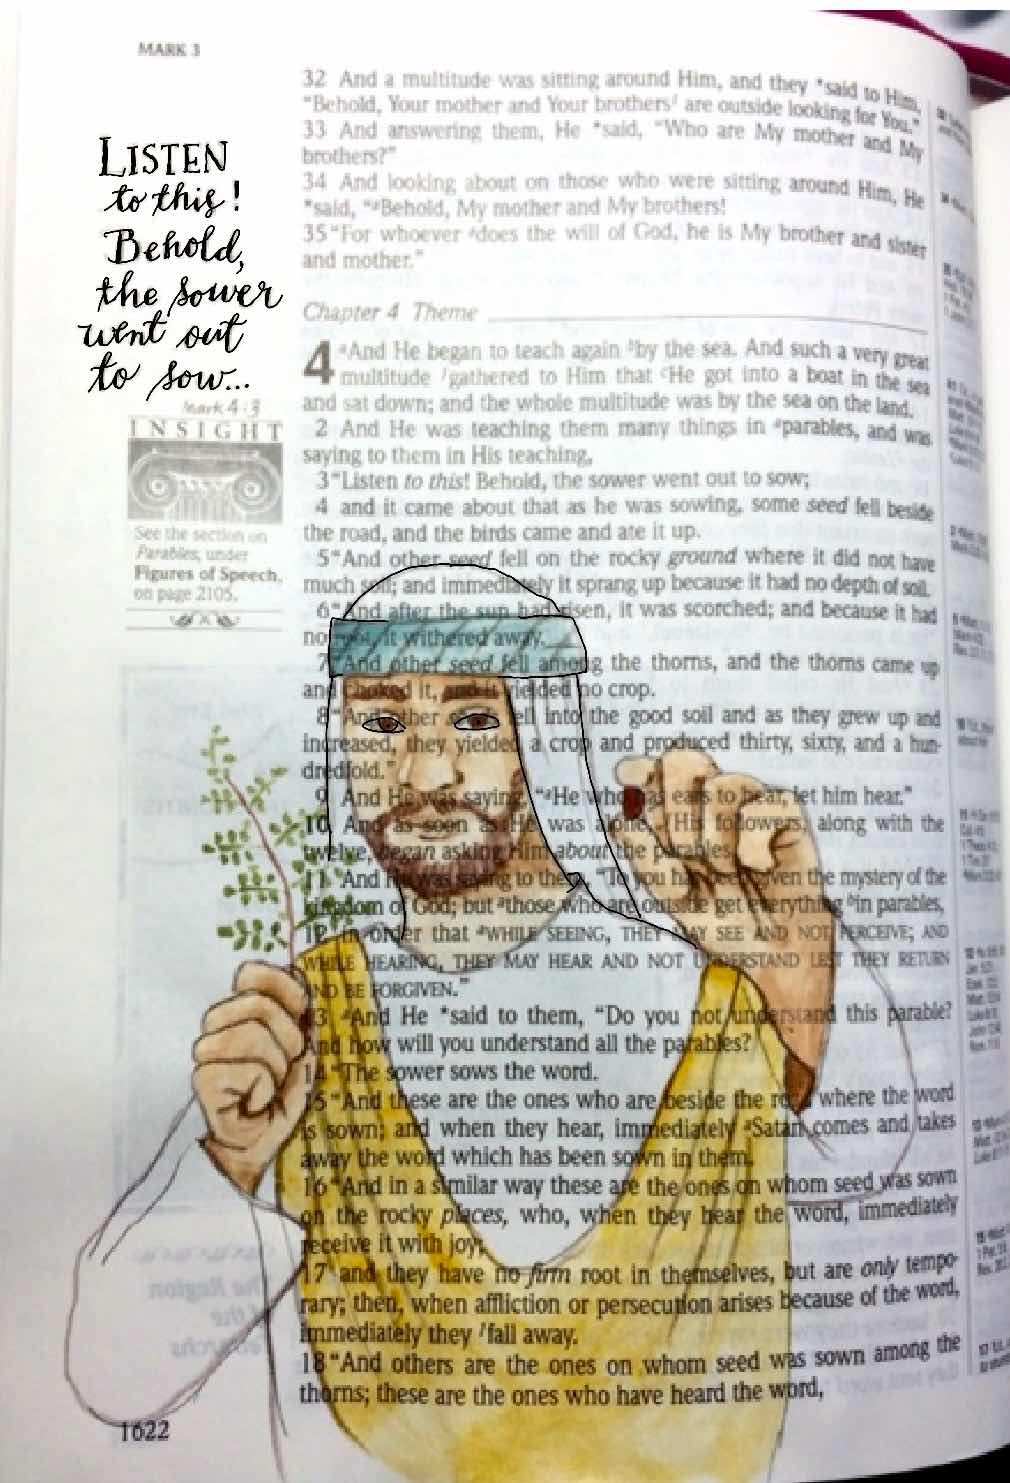 MARK 3
LISTEN
to this!
Behold,
the sower
went out
to sow...
Mark 4:3
INSIGHT
See the section on
Parables, under
Figures of Speech,
on page 2105.
32 And a multitude was sitting around Him, and they *said to Him,
"Behold, Your mother and Your brothers are outside looking for You."
33 And answering them, He *said, "Who are My mother and My
brothers?"
34 And looking about on those who were sitting around Him, He
*said, "Behold, My mother and My brothers!
35 "For whoever does the will of God, he is My brother and sister
and mother."
Chapter 4 Theme
4 And He began to teach again by the sea. And such a very great
multitude gathered to Him that He got into a boat in the sea
and sat down; and the whole multitude was by the sea on the land.
2 And He was teaching them many things in parables, and was
saying to them in His teaching,
3 "Listen to this! Behold, the sower went out to sow;
4 and it came about that as he was sowing, some seed fell beside
the road, and the birds came and ate it up.
5 "And other seed fell on the rocky ground where it did not have
much soil; and immediately it sprang up because it had no depth of soil.
6 "And after the sun had risen, it was scorched; and because it had
no root, it withered away.
7 "And other seed fell among the thorns, and the thorns came up
and choked it, and it yielded no crop.
8 "And other seeds fell into the good soil and as they grew up and
increased, they yielded a crop and produced thirty, sixty, and a hun-
dredfold."
9 And He was saying, "He who has ears to hear, let him hear."
10 And as soon as He was alone, His followers, along with the
twelve, began asking Him about the parables.
11 And He was saying to them, "To you has been given the mystery of the
kingdom of God; but those who are outside get everything in parables,
12 in order that WHILE SEEING, THEY MAY SEE AND NOT PERCEIVE; AND
WHILE HEARING, THEY MAY HEAR AND NOT UNDERSTAND LEST THEY RETURN
AND BE FORGIVEN."
13 And He *said to them, "Do you not understand this parable?
And how will you understand all the parables?
14 "The sower sows the word.
15 "And these are the ones who are beside the road where the word
is sown; and when they hear, immediately Satan comes and takes
away the word which has been sown in them.
16 "And in a similar way these are the ones on whom seed was sown
on the rocky places, who, when they hear the word, immediately
receive it with joy;
17 and they have no firm root in themselves, but are only tempo-
rary; then, when affliction or persecution arises because of the word,
immediately they fall away.
18 "And others are the ones on whom seed was sown among the
thorns; these are the ones who have heard the word,
1622